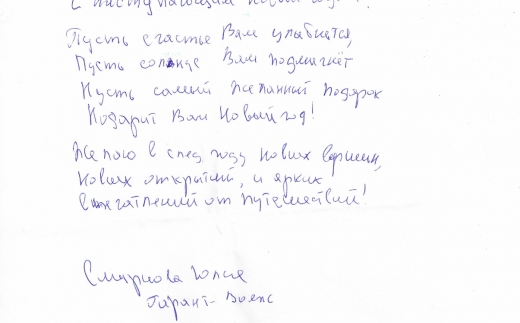 С наступающим Новым годом!
Пусть счастье Вам улыбнется,
Пусть солнце Вам подмигнёт
Пусть самый желанный подарок
Подарит Вам Новый год!
Желаю в след году новых вершин,
новых открытий, и ярких
впечатлений от путешествий!
Смирнова Юлия
Гарант-Вояж